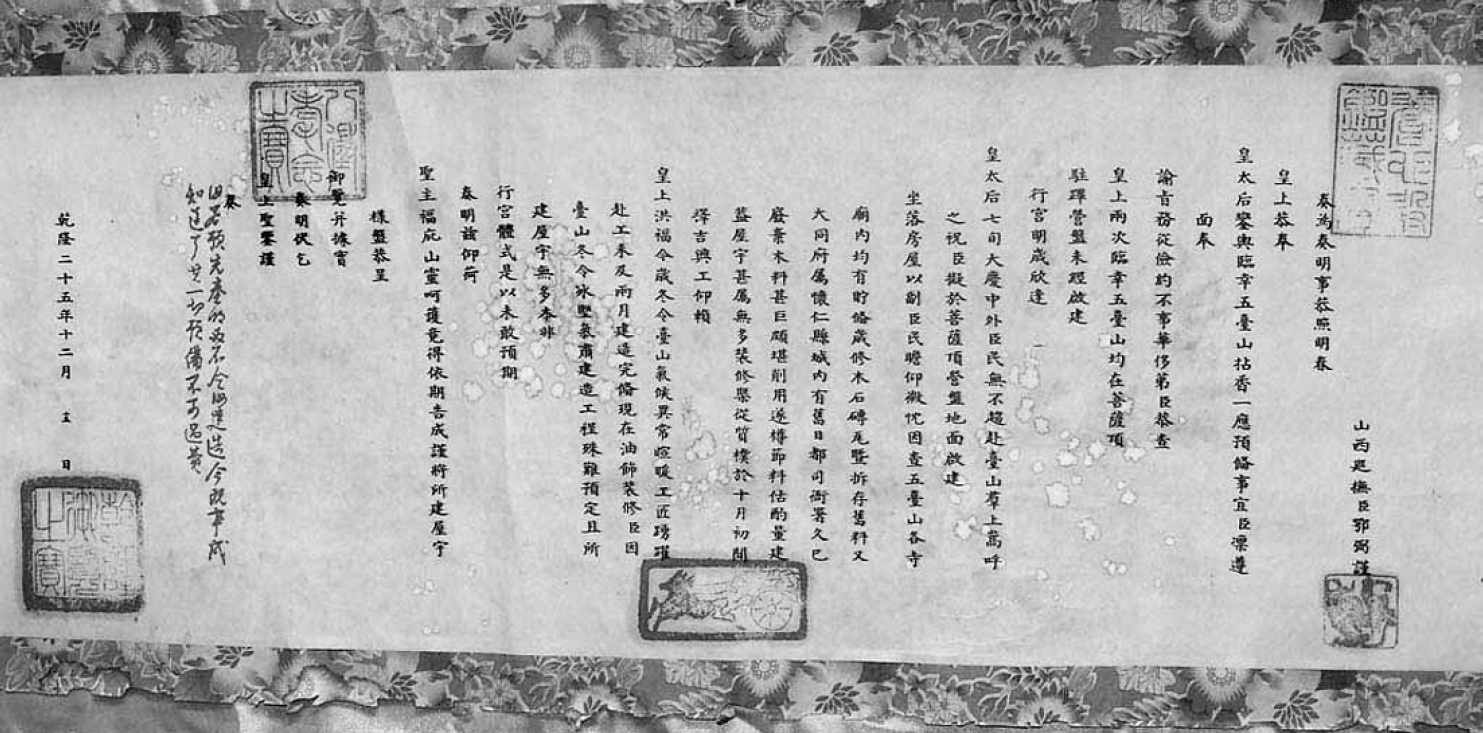 山西巡撫臣鄂弼謹
奏為奏明事恭照明春
皇上恭奉
皇太后鑾輿臨幸五臺山拈香一應預備事宜臣凜遵
面奉
諭旨務從儉約不事華侈第臣恭查
皇上兩次臨幸五臺山均在菩薩頂
駐蹕營盤未經啟建
行宮明歲欣逢
皇太后七旬大慶中外臣民無不趨赴臺山羣上嵩呼
之祝臣擬於菩薩頂營盤地面啟建
坐落房屋以副臣民瞻仰微忱因查五臺山各寺
廟內均有貯備歲修木石磚瓦暨拆存舊料又
大同府屬懷仁縣城內有舊日都司衙署久已
廢棄木料甚巨頗堪削用遂撙節料估酌量建
蓋屋宇甚屬無多裝修槩從質樸於十月初間
擇吉興工仰賴
皇上洪福今歲冬令臺山氣候異常暄暖工匠踴躍
赴工未及兩月建造完備現在油飾裝修臣因
臺山冬令冰堅氣肅建造工程殊難預定且所
建屋宇無多本非
行宮體式是以未敢預期
奏明茲仰荷
聖主福庇山靈呵護竟得依期告成謹將所建屋宇
樣盤恭呈
御覽并據實
奏明伏乞
皇上聖鑒謹
奏
知道了一切預備不可過費
乾隆二十五年十二月 日